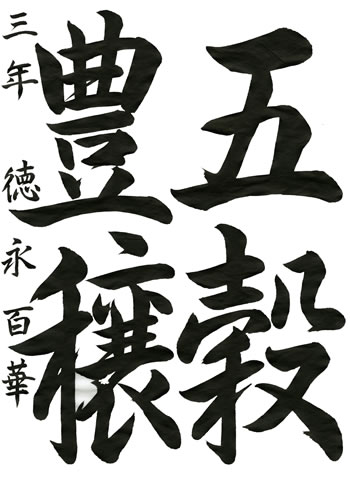 五穀
豊穣
三年 徳永百華